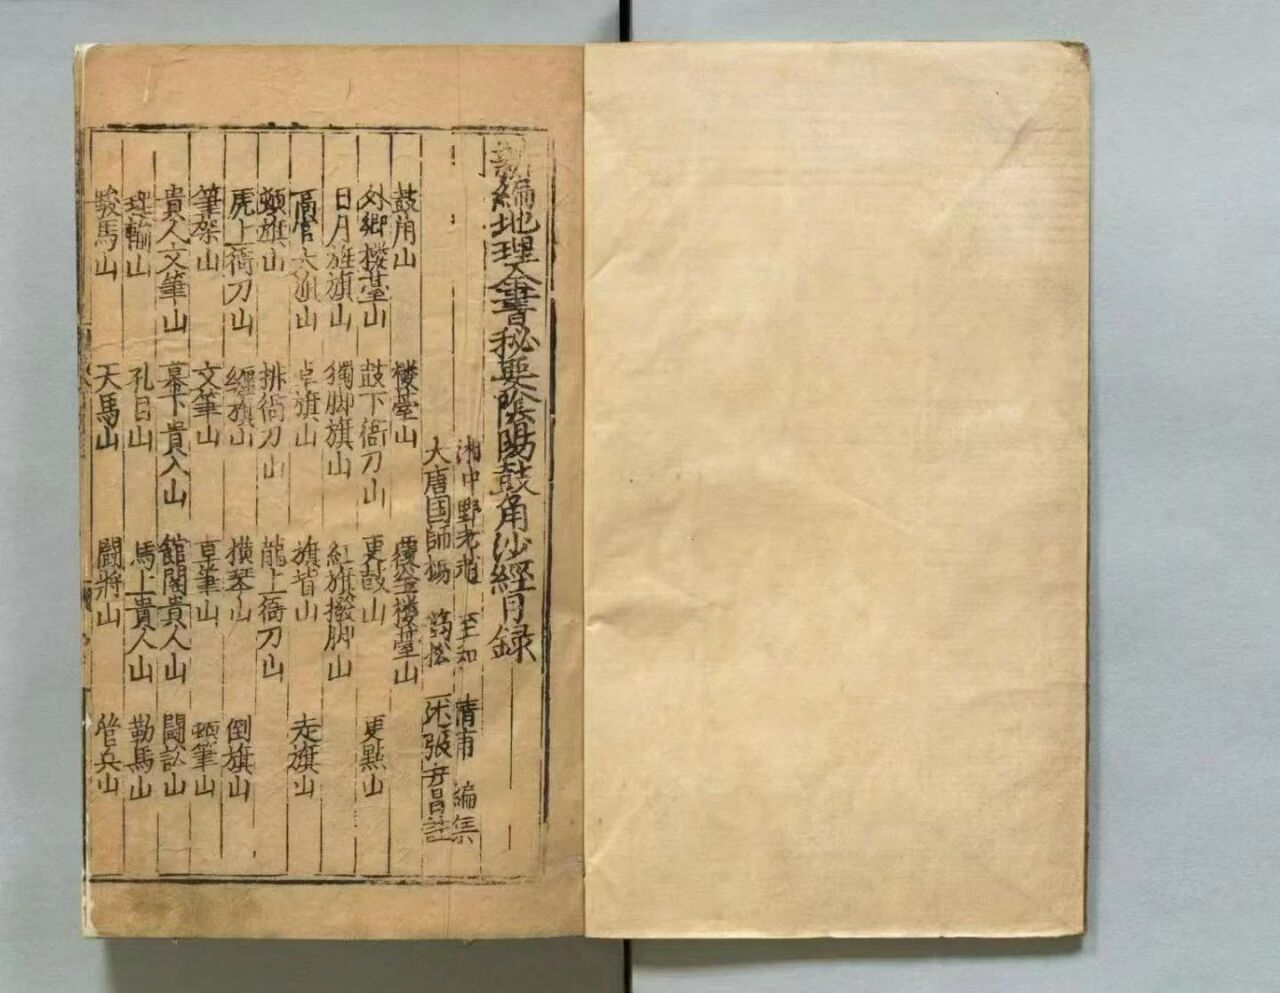 新編地理全書秘要陰陽鼓角沙經目録
湘中野老 至和 清甫 編集
大唐国師楊 筠松 張 註
鼓角山 樓臺山 覆釜樓臺山
外鄉樓臺山 鼓下衙刀山 更鼓山 更點山
日月旌旗山 獨脚旗山 紅旗撥脚山
大旗山 卓旗山 旗山 走旗山
頓旗山 排衙刀山 龍上衙刀山
虎上衙刀山 纏旗山 橫琴山 倒旗山
筆架山 文筆山 草筆山 頓筆山
貴人文筆山 幕下貴人山 館閣貴人山 闘訟山
山 孔目山 馬上貴人山 勒馬山
駿馬山 天馬山 闘將山 管兵山